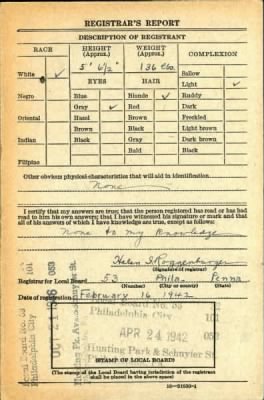 REGISTRAR'S REPORT
DESCRIPTION OF REGISTRANT
RACE HEIGHT (Approx.) WEIGHT (Approx.) COMPLEXION
5' 6½" 136 lbs.
White ✓ EYES HAIR Sallow
Light ✓
Negro Blue Blonde ✓ Ruddy
Gray ✓ Red Dark
Oriental Hazel Brown Freckled
Brown Black Light brown
Indian Black Gray Dark brown
Bald Black
Filipino
Other obvious physical characteristics that will aid in identification
None
I certify that my answers are true; that the person registered has read or has had
read to him his own answers; that I have witnessed his signature or mark and that
all of his answers of which I have knowledge are true, except as follows:
None to my knowledge
Helen
(Signature of registrar)
Registrar for Local Board 53 Phila. Penna
(Number) (City or county) (State)
Date of registration February 16, 1942
Local Board No. 53
Philadelphia City
101
053
APR 24 1942
Hunting Park & Schuyler St
Local Board No. 53
Philadelphia City
101
OCT 21
053
STAMP OF LOCAL BOARD
(The stamp of the Local Board having jurisdiction of the registrant
shall be placed in the above space)
16—21630-1